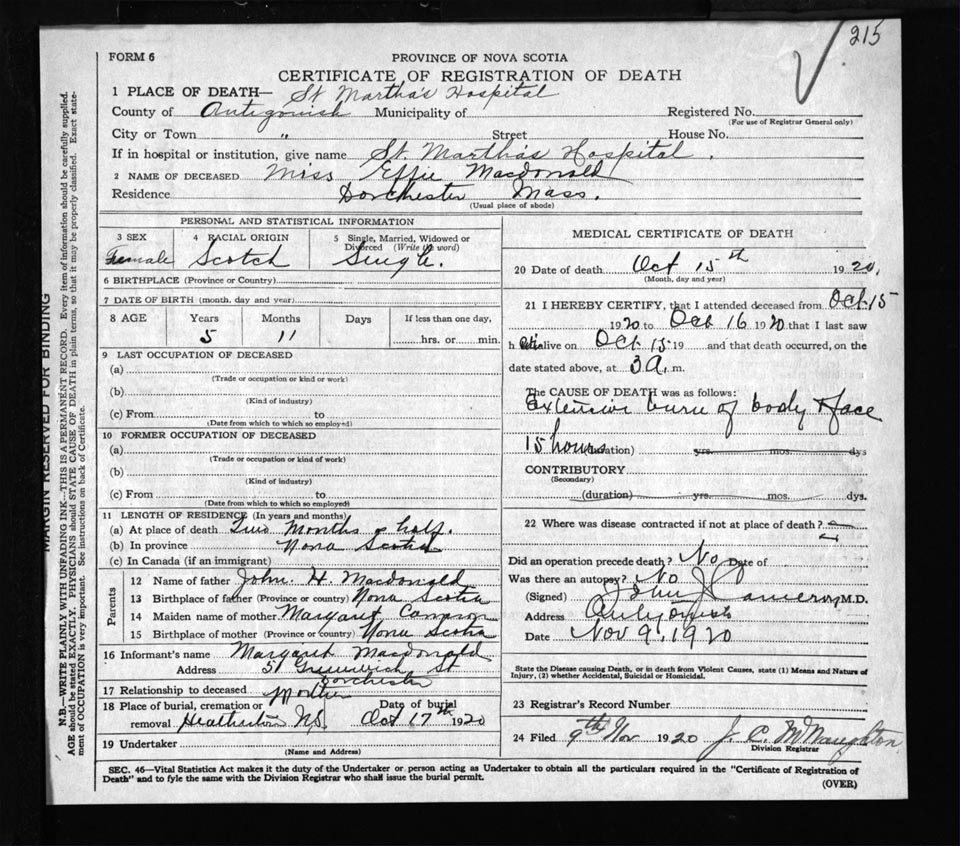 215
FORM 6
PROVINCE OF NOVA SCOTIA
CERTIFICATE OF REGISTRATION OF DEATH
1 PLACE OF DEATH— St Martha's Hospital
County of Antigonish Municipality of Registered No.
(For use of Registrar General only)
City or Town " Street House No.
If in hospital or institution, give name St. Martha's Hospital.
2 NAME OF DECEASED Miss Effie Macdonald
Residence Dorchester Mass.
(Usual place of abode)
PERSONAL AND STATISTICAL INFORMATION
3 SEX 4 RACIAL ORIGIN 5 Single, Married, Widowed or Divorced (Write the word)
Female Scotch Single.
6 BIRTHPLACE (Province or Country)
7 DATE OF BIRTH (month, day and year)
8 AGE Years Months Days If less than one day,
5 11 hrs. or min.
9 LAST OCCUPATION OF DECEASED
(a)
(Trade or occupation or kind or work)
(b)
(Kind of industry)
(c) From to
(Date from which to which so employed)
10 FORMER OCCUPATION OF DECEASED
(a)
(Trade or occupation or kind of work)
(b)
(Kind of industry)
(c) From to
(Date from which to which so employed)
11 LENGTH OF RESIDENCE (In years and months)
(a) At place of death Two Months & half.
(b) In province Nova Scotia
(c) In Canada (if an immigrant)
Parents
12 Name of father John. H. Macdonald
13 Birthplace of father (Province or country) Nova Scotia
14 Maiden name of mother Margaret Cameron
15 Birthplace of mother (Province or country) Nova Scotia
16 Informant's name Margaret Macdonald
Address 51 Greenwich St
Dorchester
17 Relationship to deceased Mother
18 Place of burial, cremation or removal Heatherton N.S. Date of burial Oct 17th 1920
19 Undertaker
(Name and Address)
MEDICAL CERTIFICATE OF DEATH
20 Date of death Oct 15th 1920.
(Month, day and year)
21 I HEREBY CERTIFY, that I attended deceased from Oct 15
1920 to Oct 16 1920 that I last saw
h alive on Oct 15 19 and that death occurred, on the
date stated above, at 3 A. m.
The CAUSE OF DEATH was as follows:
Extensive burn of body & face
15 hours (duration) yrs. mos. dys
CONTRIBUTORY
(Secondary)
(duration) yrs. mos. dys.
22 Where was disease contracted if not at place of death?
Did an operation precede death? No Date of
Was there an autopsy? No
(Signed) John J Cameron M.D.
Address Antigonish
Date Nov 9. 1920
State the Disease causing Death, or in death from Violent Causes, state (1) Means and Nature of
Injury, (2) whether Accidental, Suicidal or Homicidal.
23 Registrar's Record Number
24 Filed 9th Nov 1920 J. C. McNaughton
Division Registrar
SEC. 46—Vital Statistics Act makes it the duty of the Undertaker or person acting as Undertaker to obtain all the particulars required in the "Certificate of Registration of
Death" and to fyle the same with the Division Registrar who shall issue the burial permit.
(OVER)
MARGIN RESERVED FOR BINDING
N.B.—WRITE PLAINLY WITH UNFADING INK—THIS IS A PERMANENT RECORD. Every item of information should be carefully supplied.
AGE should be stated EXACTLY. PHYSICIANS should STATE CAUSE OF DEATH in plain terms, so that it may be properly classified. Exact state-
ment of OCCUPATION is very important. See instructions on back of Certificate.